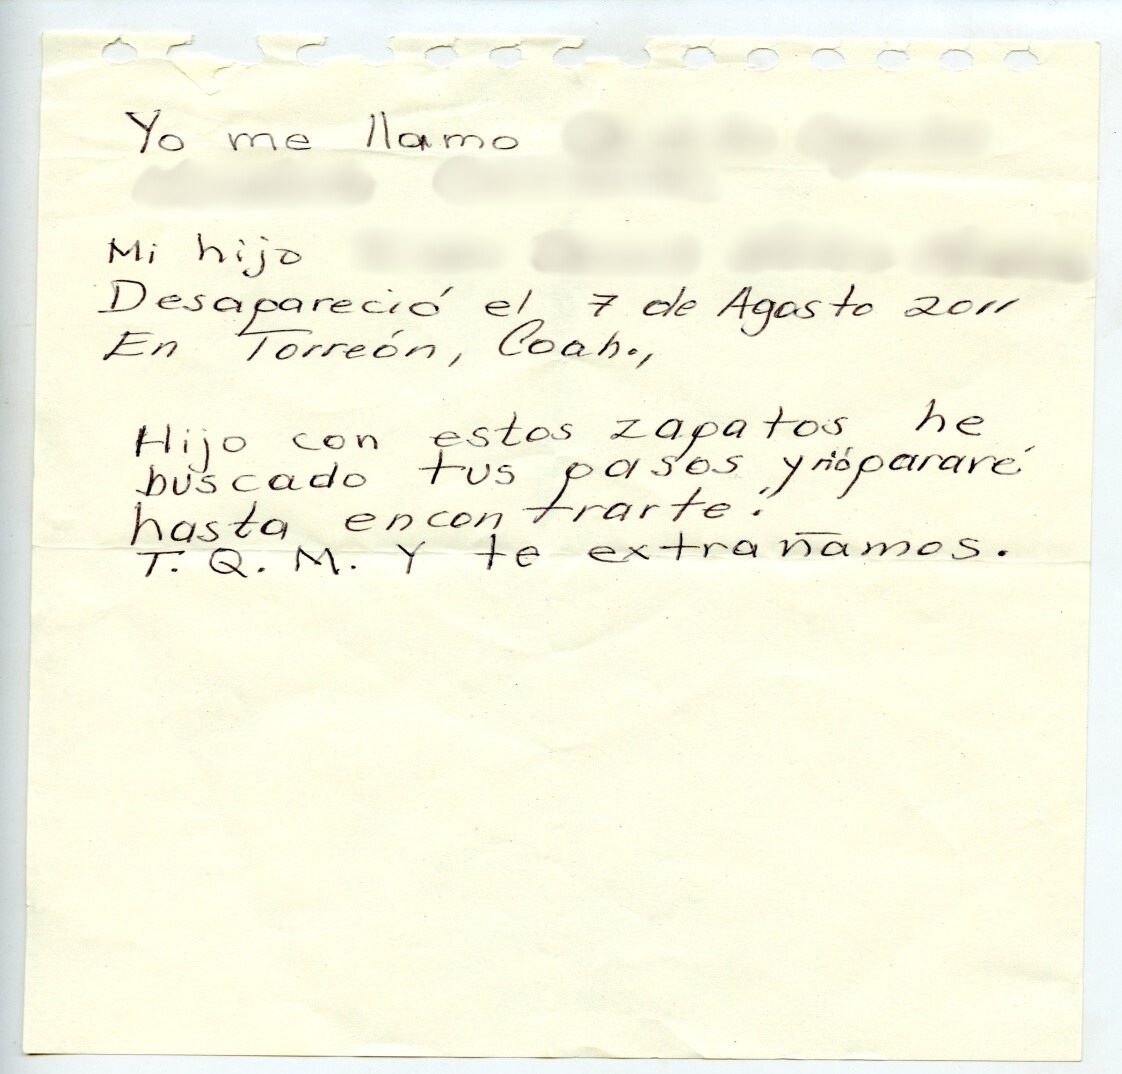 Yo me llamo
Mi hijo
Desapareció el 7 de Agosto 2011
En Torreón, Coah.,
Hijo con estos zapatos he
buscado tus pasos y no pararé
hasta encontrarte.
T. Q. M. Y te extrañamos.